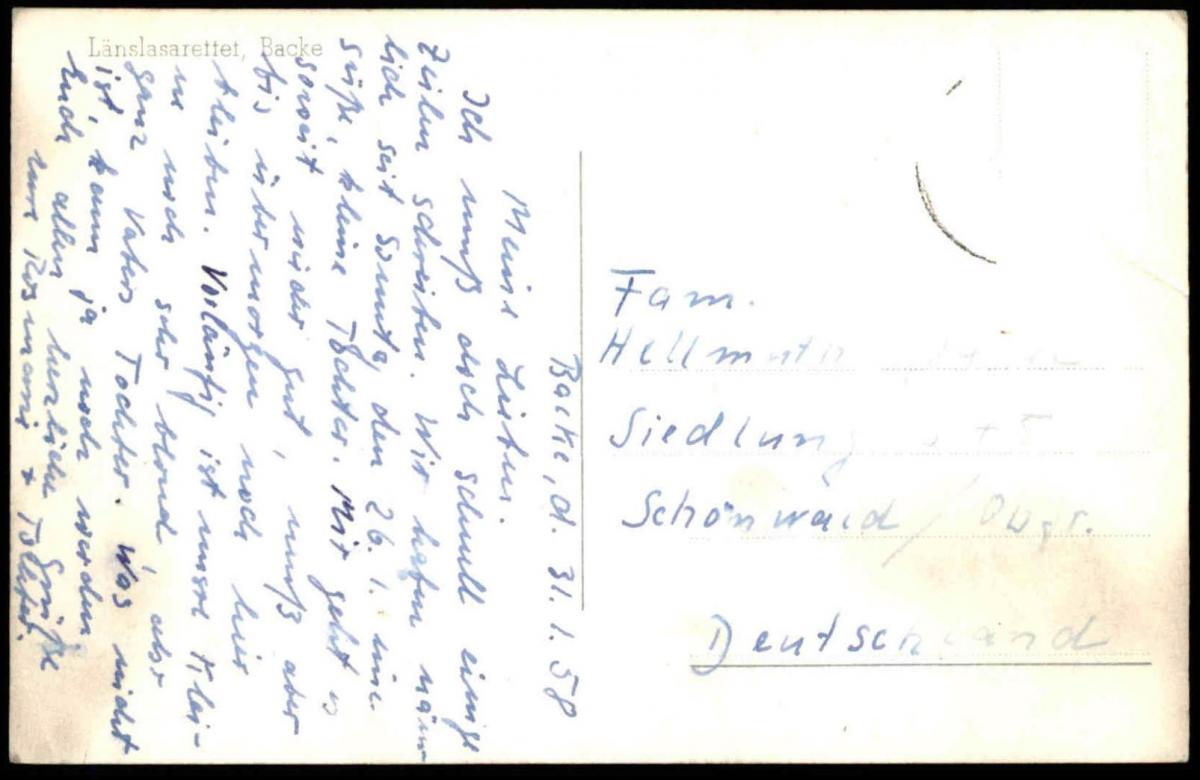 Länslasarettet, Backe
Backe, d. 31.1.58
Meine Lieben.
Ich muß doch schnell einige
Zeilen schreiben. Wir haben näm-
lich seit Sonntg den 26.1. eine
süße, kleine Tochter. Mir geht es
soweit wieder gut, muß aber
bis übermorgen noch hier
bleiben. Vorläufig ist unsere Klei-
ne noch sehr blond aber
ganz Vaters Tochter. Was nicht
ist, kann ja noch werden.
Euch allen herzliche Grüße
eure Rosmarie + Tochter.
Fam.
Hellmuth
Siedlung
Schönwald / Obgr.
Deutschland